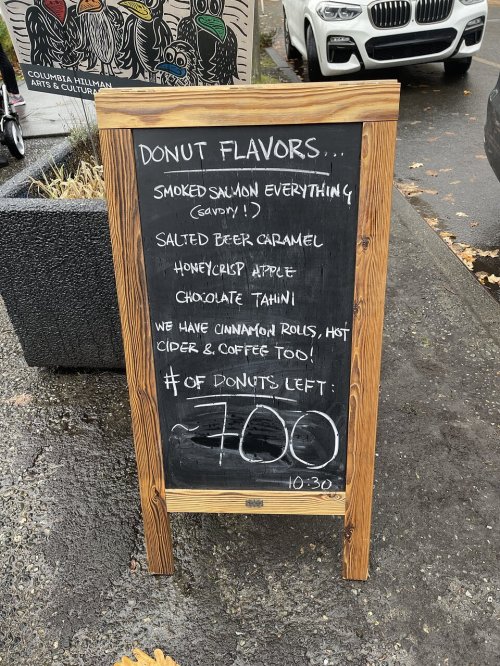 COLUMBIA HILLMAN
ARTS & CULTURA
DONUT FLAVORS...
SMOKED SALMON EVERYTHING
(savory!)
SALTED BEER CARAMEL
HONEYCRISP APPLE
CHOCOLATE TAHINI
WE HAVE CINNAMON ROLLS, HOT
CIDER & COFFEE TOO!
# OF DONUTS LEFT:
~700
10:30